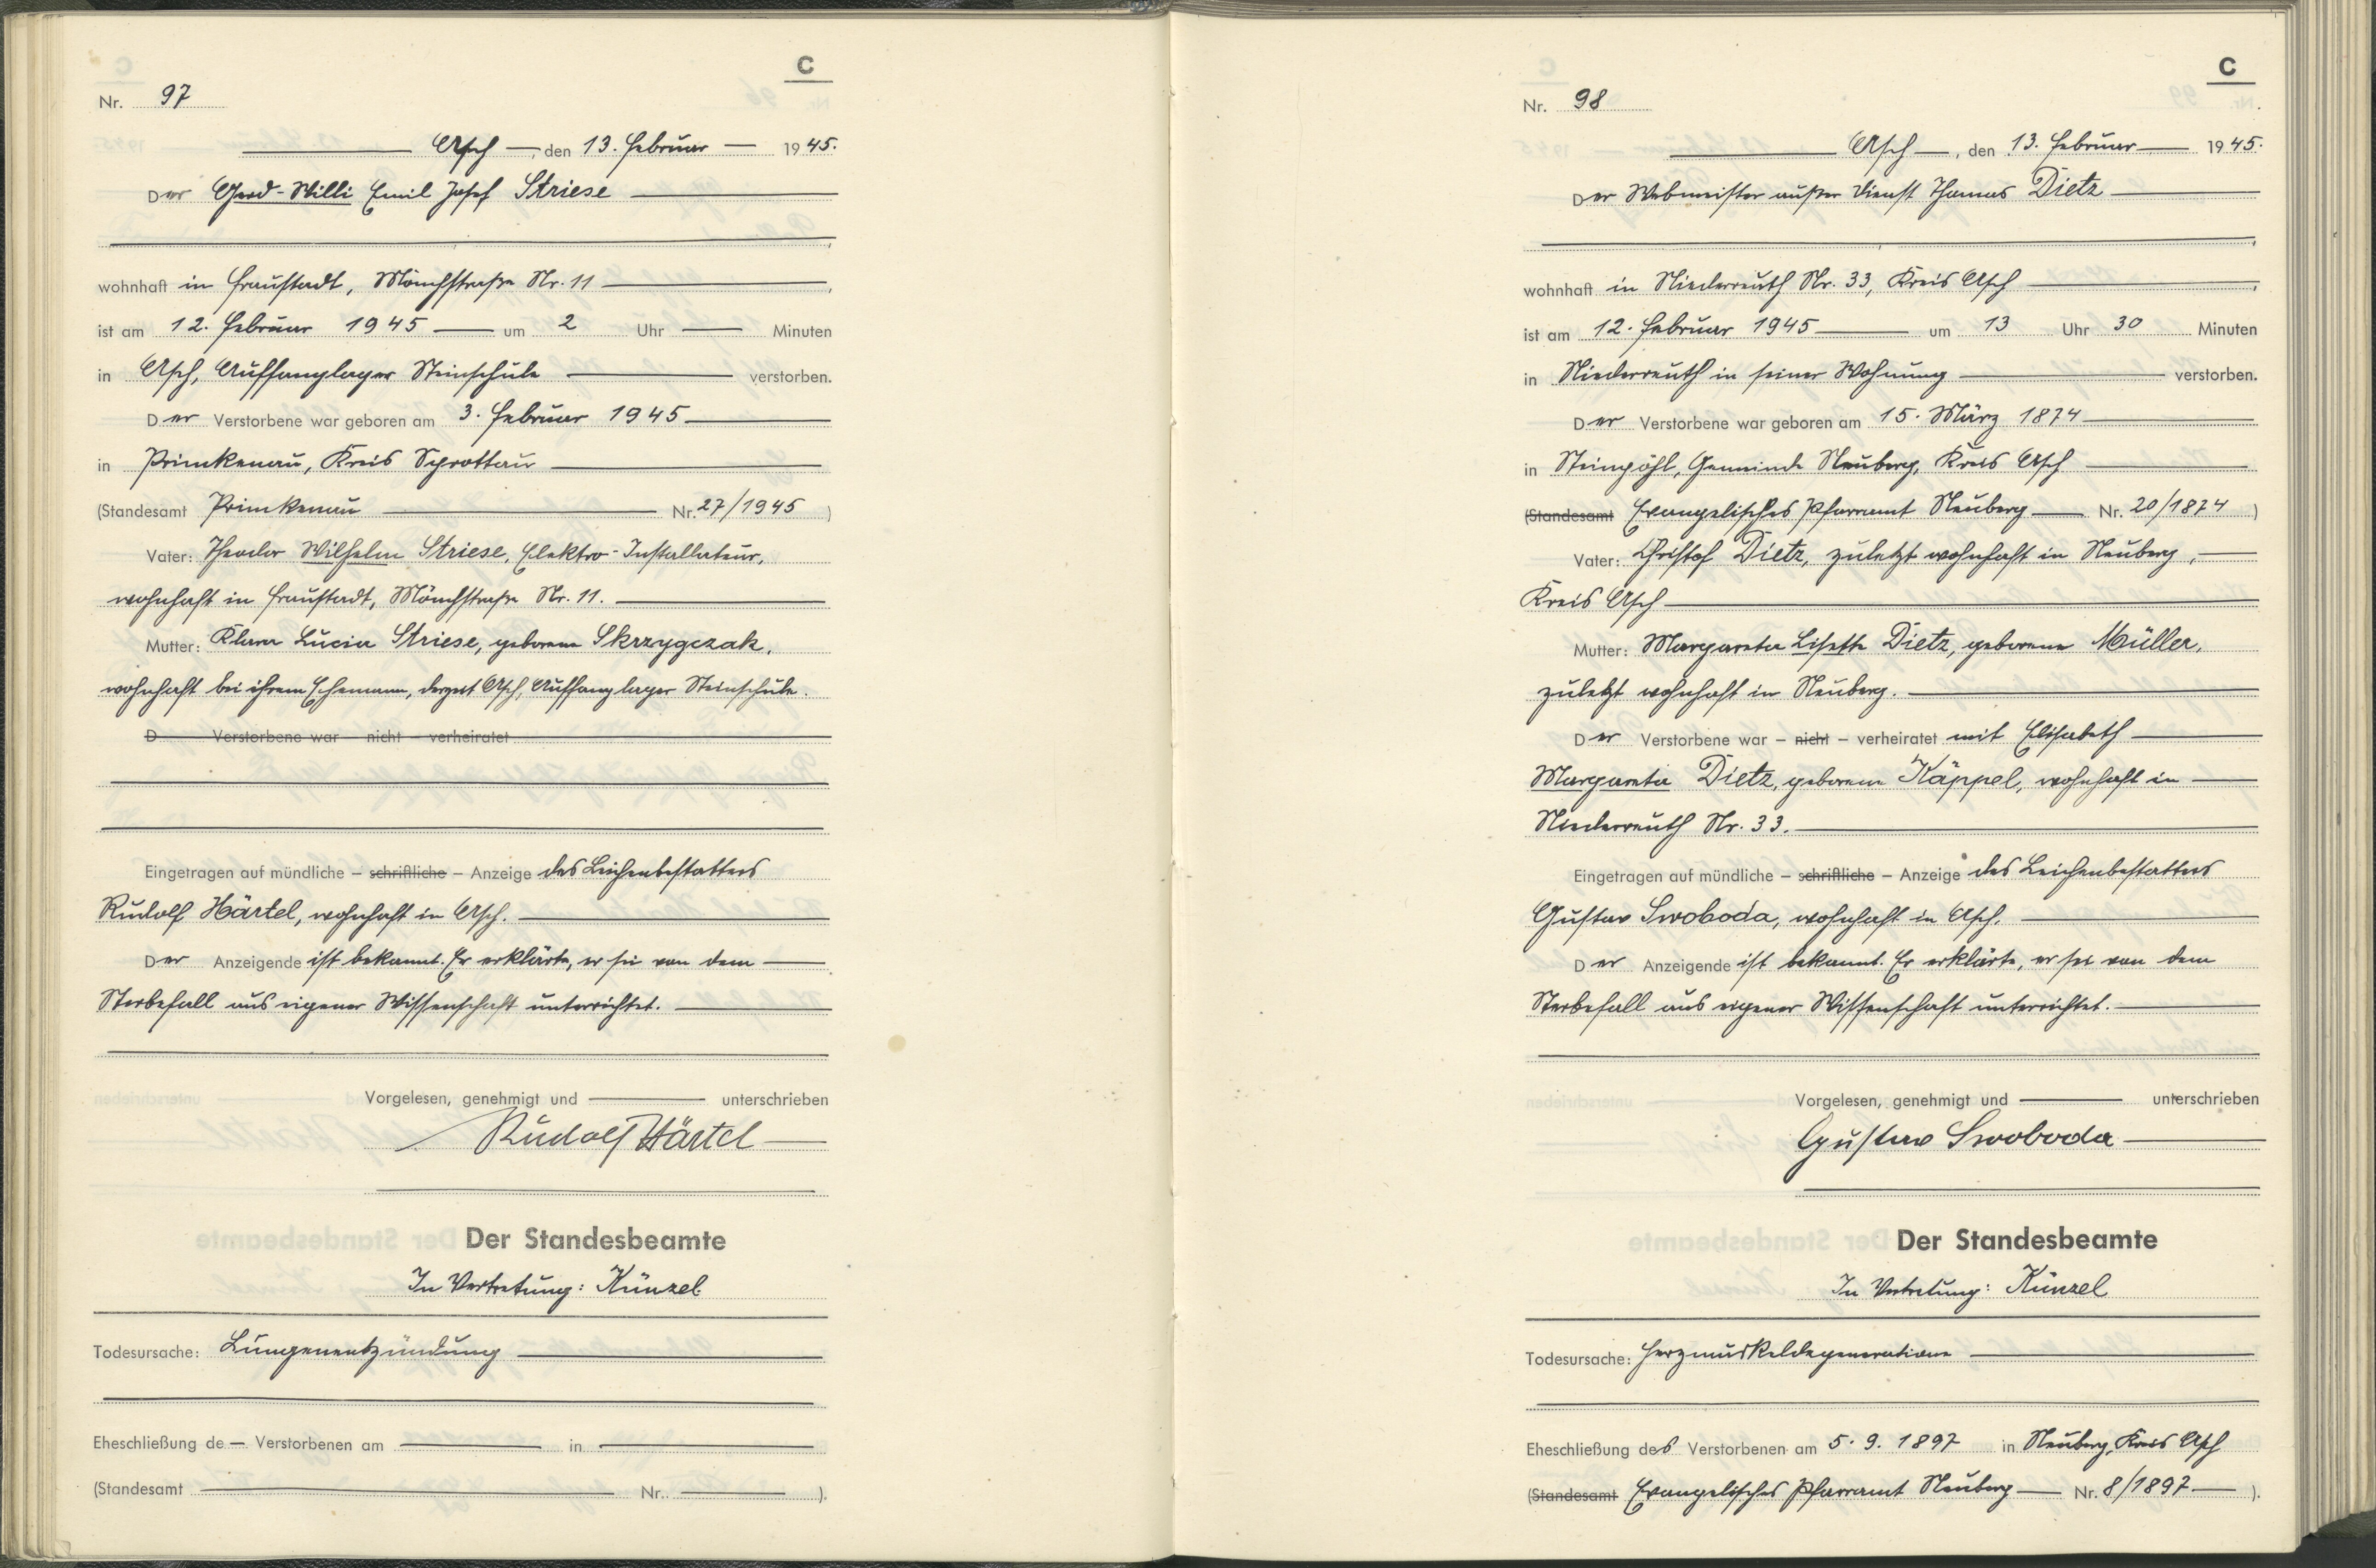 C
Nr. 97
Asch, den 13. Februar 1945.
Der Gerd-Willi Emil Josef Striese
wohnhaft in Fraustadt, Mönchstraße Nr. 11,
ist am 12. Februar 1945 um 2 Uhr Minuten
in Asch, Auffanglager Steinschule verstorben.
Der Verstorbene war geboren am 3. Februar 1945
in Primkenau, Kreis Sprottau
(Standesamt Primkenau Nr. 27/1945)
Vater: Theodor Wilhelm Striese, Elektro-Installateur,
wohnhaft in Fraustadt, Mönchstraße Nr. 11.
Mutter: Klara Lucia Striese, geborene Skrzypczak,
wohnhaft bei ihrem Ehemann, derzeit Asch, Auffanglager Steinschule.
D Verstorbene war nicht verheiratet
Eingetragen auf mündliche – schriftliche – Anzeige des Leichenbestatters
Rudolf Härtel, wohnhaft in Asch.
Der Anzeigende ist bekannt. Er erklärte, er sei von dem
Sterbefall aus eigener Wissenschaft unterrichtet.
Vorgelesen, genehmigt und unterschrieben
Rudolf Härtel
Der Standesbeamte
In Vertretung: Künzel
Todesursache: Lungenentzündung
Eheschließung de Verstorbenen am in
(Standesamt Nr. ).
C
Nr. 98
Asch, den 13. Februar 1945.
Der Webmeister außer Dienst Thomas Dietz
wohnhaft in Niederreuth Nr. 33, Kreis Asch,
ist am 12. Februar 1945 um 13 Uhr 30 Minuten
in Niederreuth in seiner Wohnung verstorben.
Der Verstorbene war geboren am 15. März 1874
in Steinpöhl, Gemeinde Neuberg, Kreis Asch
(Standesamt Evangelisches Pfarramt Neuberg Nr. 20/1874)
Vater: Christof Dietz, zuletzt wohnhaft in Neuberg,
Kreis Asch
Mutter: Margareta Lisette Dietz, geborene Müller,
zuletzt wohnhaft in Neuberg.
Der Verstorbene war – nicht – verheiratet mit Elisabeth
Margareta Dietz, geborene Käppel, wohnhaft in
Niederreuth Nr. 33.
Eingetragen auf mündliche – schriftliche – Anzeige des Leichenbestatters
Gustav Swoboda, wohnhaft in Asch.
Der Anzeigende ist bekannt. Er erklärte, er sei von dem
Sterbefall aus eigener Wissenschaft unterrichtet.
Vorgelesen, genehmigt und unterschrieben
Gustav Swoboda
Der Standesbeamte
In Vertretung: Künzel
Todesursache: Herzmuskeldegeneration
Eheschließung des Verstorbenen am 5. 9. 1897 in Neuberg, Kreis Asch
(Standesamt Evangelisches Pfarramt Neuberg Nr. 8/1897).